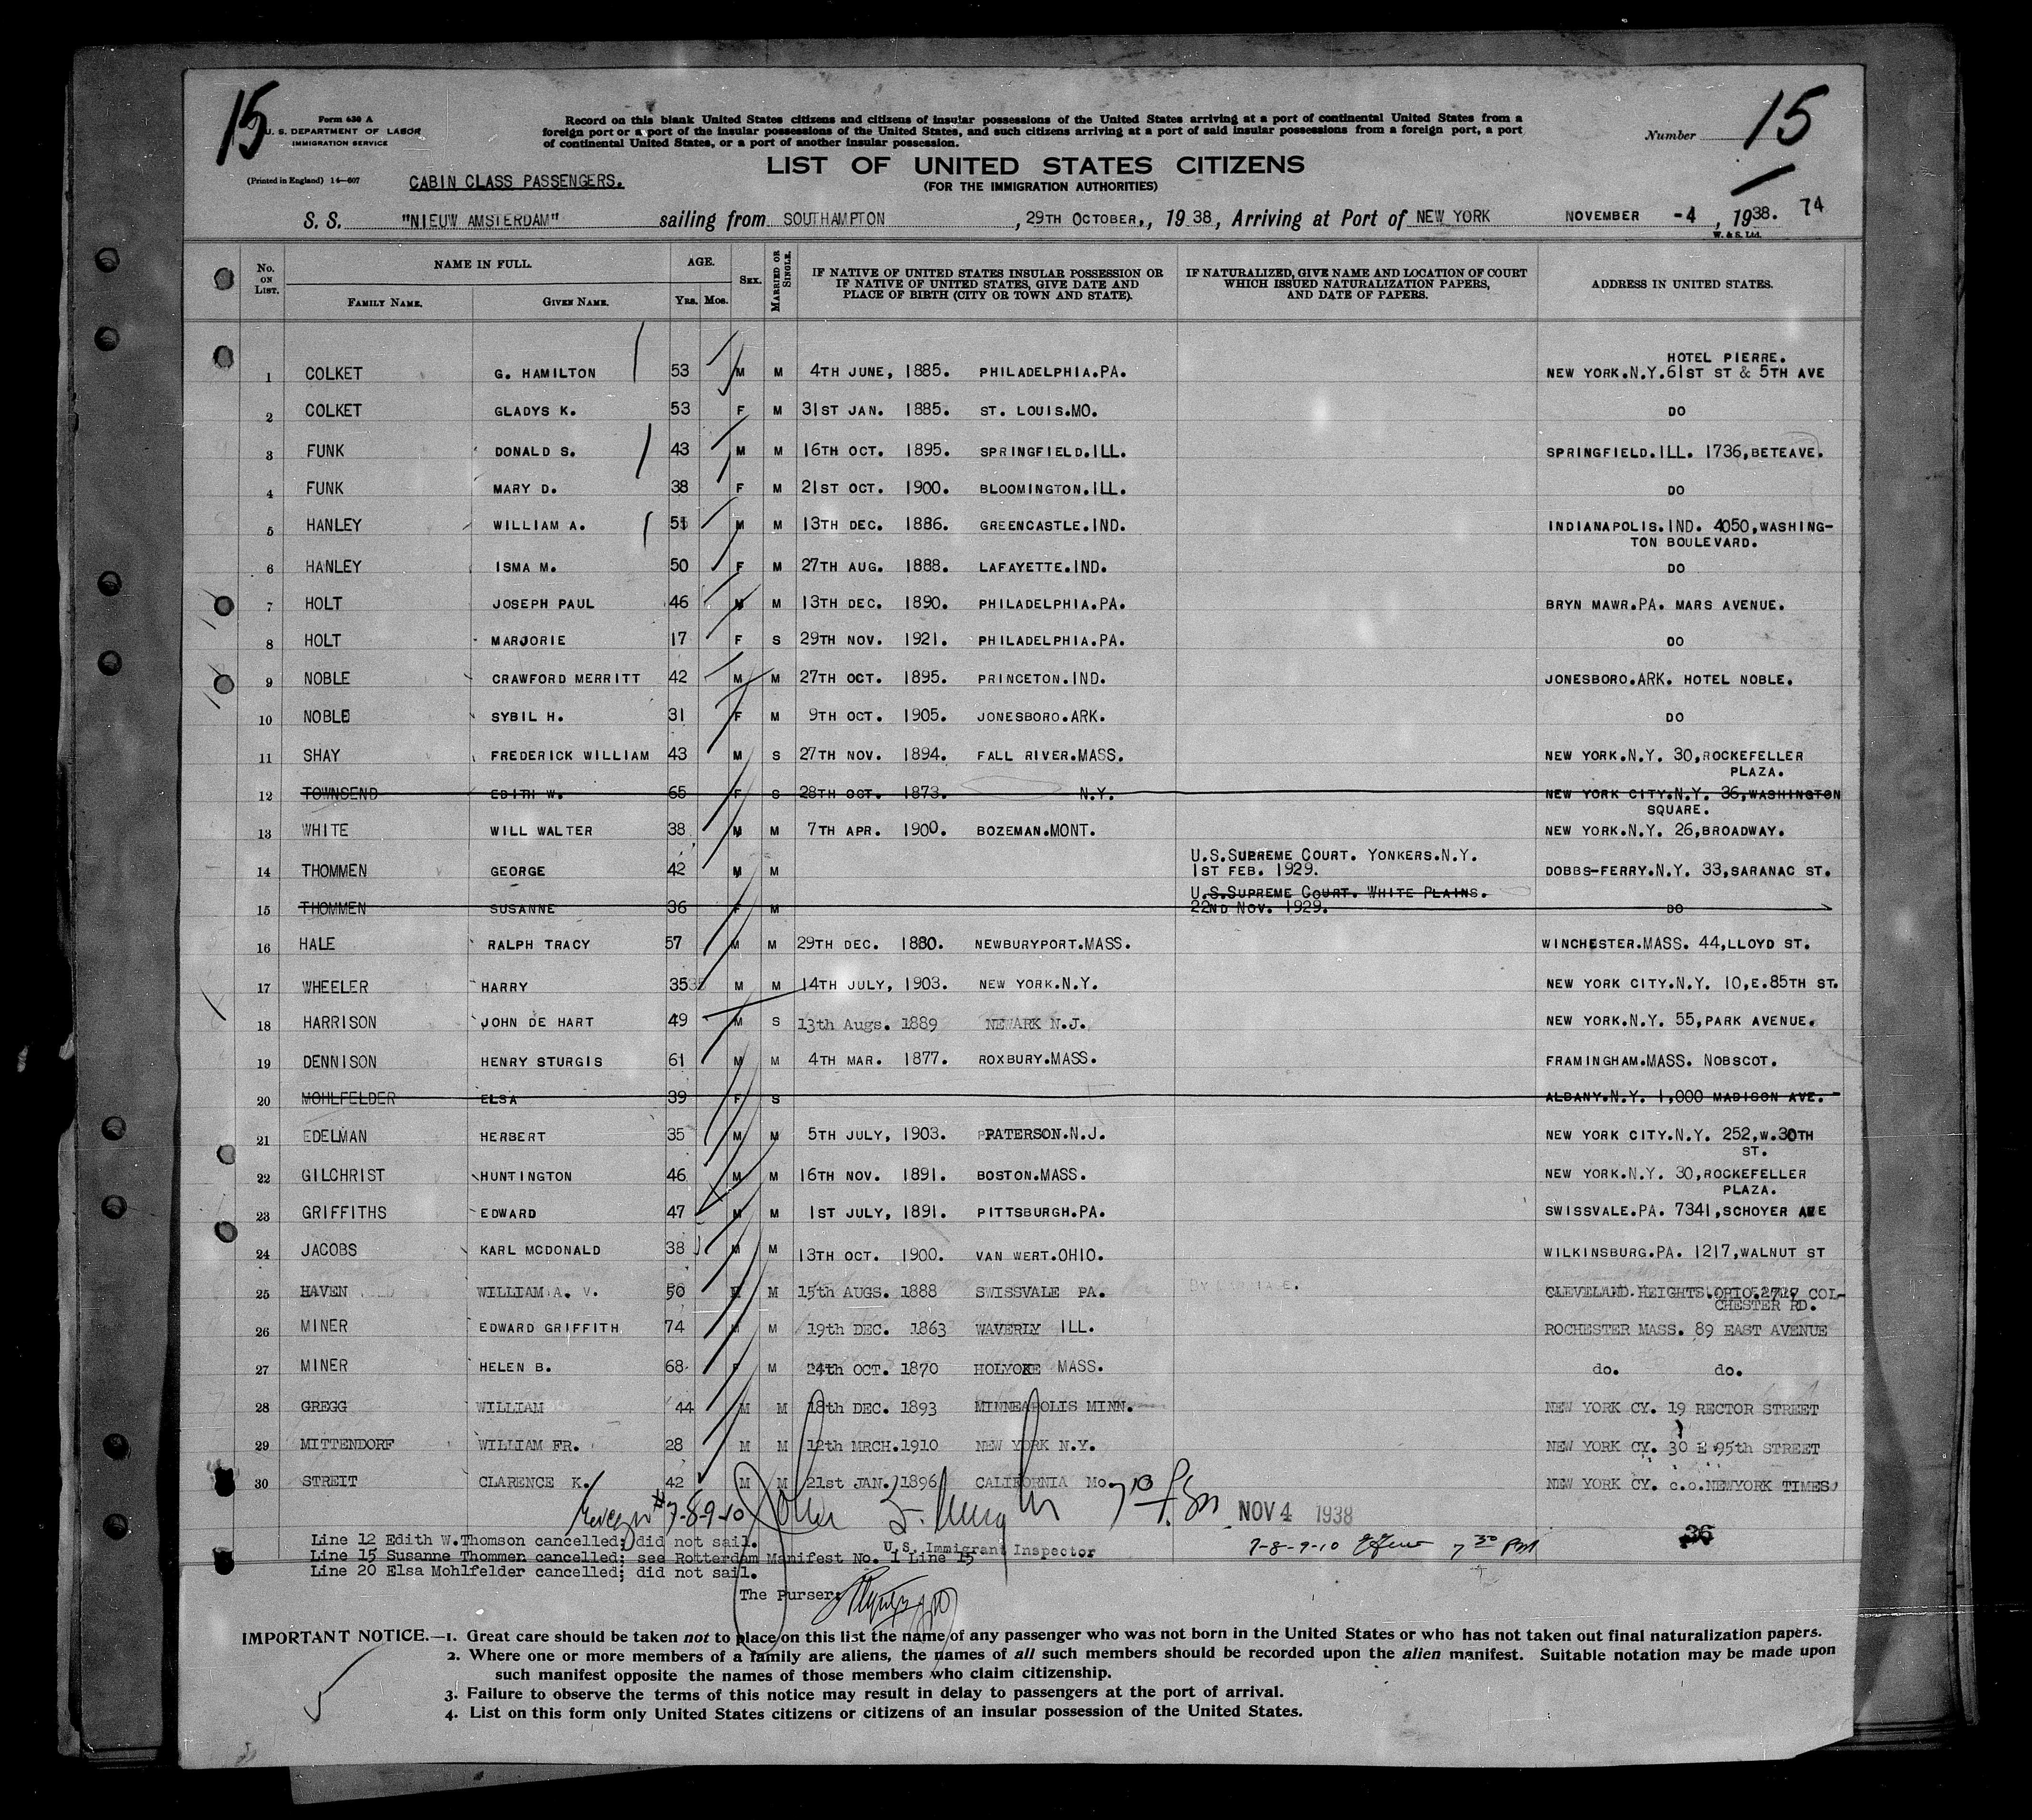 15
Form 630 A
U. S. DEPARTMENT OF LABOR
IMMIGRATION SERVICE
(Printed in England) 14—607
Record on this blank United States citizens and citizens of insular possessions of the United States arriving at a port of continental United States from a
foreign port or a port of the insular possessions of the United States, and such citizens arriving at a port of said insular possessions from a foreign port, a port
of continental United States, or a port of another insular possession.
Number 15
LIST OF UNITED STATES CITIZENS
(FOR THE IMMIGRATION AUTHORITIES)
CABIN CLASS PASSENGERS.
S. S. "NIEUW AMSTERDAM" sailing from SOUTHAMPTON, 29TH OCTOBER,, 1938, Arriving at Port of NEW YORK NOVEMBER -4, 1938. 74
W. & S. Ltd.
No. ON LIST. NAME IN FULL. FAMILY NAME. GIVEN NAME. AGE. Yrs. Mos. SEX. MARRIED OR SINGLE. IF NATIVE OF UNITED STATES INSULAR POSSESSION OR IF NATIVE OF UNITED STATES, GIVE DATE AND PLACE OF BIRTH (CITY OR TOWN AND STATE). IF NATURALIZED, GIVE NAME AND LOCATION OF COURT WHICH ISSUED NATURALIZATION PAPERS, AND DATE OF PAPERS. ADDRESS IN UNITED STATES.
HOTEL PIERRE.
1 COLKET G. HAMILTON 53 M M 4TH JUNE, 1885. PHILADELPHIA.PA. NEW YORK.N.Y.61ST ST & 5TH AVE
2 COLKET GLADYS K. 53 F M 31ST JAN. 1885. ST. LOUIS.MO. DO
3 FUNK DONALD S. 43 M M 16TH OCT. 1895. SPRINGFIELD.ILL. SPRINGFIELD.ILL. 1736,BETEAVE.
4 FUNK MARY D. 38 F M 21ST OCT. 1900. BLOOMINGTON.ILL. DO
5 HANLEY WILLIAM A. 51 M M 13TH DEC. 1886. GREENCASTLE.IND. INDIANAPOLIS.IND. 4050,WASHING-
TON BOULEVARD.
6 HANLEY ISMA M. 50 F M 27TH AUG. 1888. LAFAYETTE.IND. DO
7 HOLT JOSEPH PAUL 46 M M 13TH DEC. 1890. PHILADELPHIA.PA. BRYN MAWR.PA. MARS AVENUE.
8 HOLT MARJORIE 17 F S 29TH NOV. 1921. PHILADELPHIA.PA. DO
9 NOBLE CRAWFORD MERRITT 42 M M 27TH OCT. 1895. PRINCETON.IND. JONESBORO.ARK. HOTEL NOBLE.
10 NOBLE SYBIL H. 31 F M 9TH OCT. 1905. JONESBORO.ARK. DO
11 SHAY FREDERICK WILLIAM 43 M S 27TH NOV. 1894. FALL RIVER.MASS. NEW YORK.N.Y. 30,ROCKEFELLER
PLAZA.
12 TOWNSEND EDITH W. 65 F S 28TH OCT. 1873. N.Y. NEW YORK CITY.N.Y. 36,WASHINGTON
SQUARE.
13 WHITE WILL WALTER 38 M M 7TH APR. 1900. BOZEMAN.MONT. NEW YORK.N.Y. 26,BROADWAY.
U.S.SUPREME COURT. YONKERS.N.Y.
14 THOMMEN GEORGE 42 M M 1ST FEB. 1929. DOBBS-FERRY.N.Y. 33,SARANAC ST.
U.S.SUPREME COURT. WHITE PLAINS.
15 THOMMEN SUSANNE 36 F M 22ND NOV. 1929. DO
16 HALE RALPH TRACY 57 M M 29TH DEC. 1880. NEWBURYPORT.MASS. WINCHESTER.MASS. 44,LLOYD ST.
17 WHEELER HARRY 35 M M 14TH JULY, 1903. NEW YORK.N.Y. NEW YORK CITY.N.Y. 10,E.85TH ST.
18 HARRISON JOHN DE HART 49 M S 13th Augs. 1889 NEWARK N.J. NEW YORK.N.Y. 55,PARK AVENUE.
19 DENNISON HENRY STURGIS 61 M M 4TH MAR. 1877. ROXBURY.MASS. FRAMINGHAM.MASS. NOBSCOT.
20 MOHLFELDER ELSA 39 F S ALBANY.N.Y. 1,000 MADISON AVE.
21 EDELMAN HERBERT 35 M M 5TH JULY, 1903. PATERSON.N.J. NEW YORK CITY.N.Y. 252,W.30TH
ST.
22 GILCHRIST HUNTINGTON 46 M M 16TH NOV. 1891. BOSTON.MASS. NEW YORK.N.Y. 30,ROCKEFELLER
PLAZA.
23 GRIFFITHS EDWARD 47 M M 1ST JULY, 1891. PITTSBURGH.PA. SWISSVALE.PA. 7341,SCHOYER AVE
24 JACOBS KARL MCDONALD 38 M M 13TH OCT. 1900. VAN WERT.OHIO. WILKINSBURG.PA. 1217,WALNUT ST
25 HAVEN WILLIAM A. V. 50 M M 15th AUGS. 1888 SWISSVALE PA. CLEVELAND HEIGHTS.OHIO. COL-
CHESTER RD.
26 MINER EDWARD GRIFFITH 74 M M 19th DEC. 1863 WAVERLY ILL. ROCHESTER MASS. 89 EAST AVENUE
27 MINER HELEN B. 68 F M 24th OCT. 1870 HOLYOKE MASS. do. do.
28 GREGG WILLIAM 44 M M 18th DEC. 1893 MINNEAPOLIS MINN. NEW YORK CY. 19 RECTOR STREET
29 MITTENDORF WILLIAM FR. 28 M M 12th MRCH.1910 NEW YORK N.Y. NEW YORK CY. 30 E 95th STREET
30 STREIT CLARENCE K. 42 M M 21st JAN. 1896 CALIFORNIA Mo. NEW YORK CY. c.o.NEWYORK TIMES.
7-8-9-10
NOV 4 1938
U.S. Immigrant Inspector
7-8-9-10 7 30 PM
36
Line 12 Edith W.Thomson cancelled; did not sail.
Line 15 Susanne Thommen cancelled; see Rotterdam Manifest No. 1 Line 15
Line 20 Elsa Mohlfelder cancelled; did not sail.
The Purser:
IMPORTANT NOTICE.—1. Great care should be taken not to place on this list the name of any passenger who was not born in the United States or who has not taken out final naturalization papers.
2. Where one or more members of a family are aliens, the names of all such members should be recorded upon the alien manifest. Suitable notation may be made upon
such manifest opposite the names of those members who claim citizenship.
3. Failure to observe the terms of this notice may result in delay to passengers at the port of arrival.
4. List on this form only United States citizens or citizens of an insular possession of the United States.